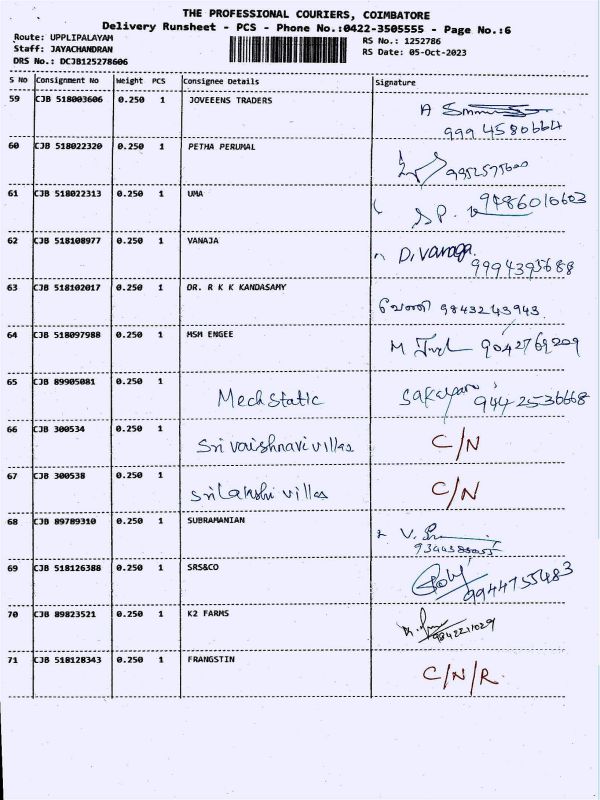 THE PROFESSIONAL COURIERS, COIMBATORE
Delivery Runsheet - PCS - Phone No.:0422-3505555 - Page No.:6
Route: UPPLIPALAYAM
Staff: JAYACHANDRAN
DRS No.: DCJB125278606
RS No.: 1252786
RS Date: 05-Oct-2023
S No Consignment No Weight PCS Consignee Details Signature
59 CJB 518003606 0.250 1 JOVEEENS TRADERS A
999 4580664
60 CJB 518022320 0.250 1 PETHA PERUMAL 9952575600
61 CJB 518022313 0.250 1 UMA S.P. 9486010603
62 CJB 518108977 0.250 1 VANAJA D.Vanaja
9994395688
63 CJB 518102017 0.250 1 DR. R K K KANDASAMY வேணி 9843243943
64 CJB 518097988 0.250 1 MSM ENGEE M 9042769209
65 CJB 89905081 0.250 1 Mech static 9442536668
66 CJB 300534 0.250 1 Sri vaishnavi villas C/N
67 CJB 300538 0.250 1 Sri Lakshi villas C/N
68 CJB 89789310 0.250 1 SUBRAMANIAN V.
69 CJB 518126388 0.250 1 SRS&CO 9944755483
70 CJB 89823521 0.250 1 K2 FARMS 9842211029
71 CJB 518128343 0.250 1 FRANGSTIN C/N/R.